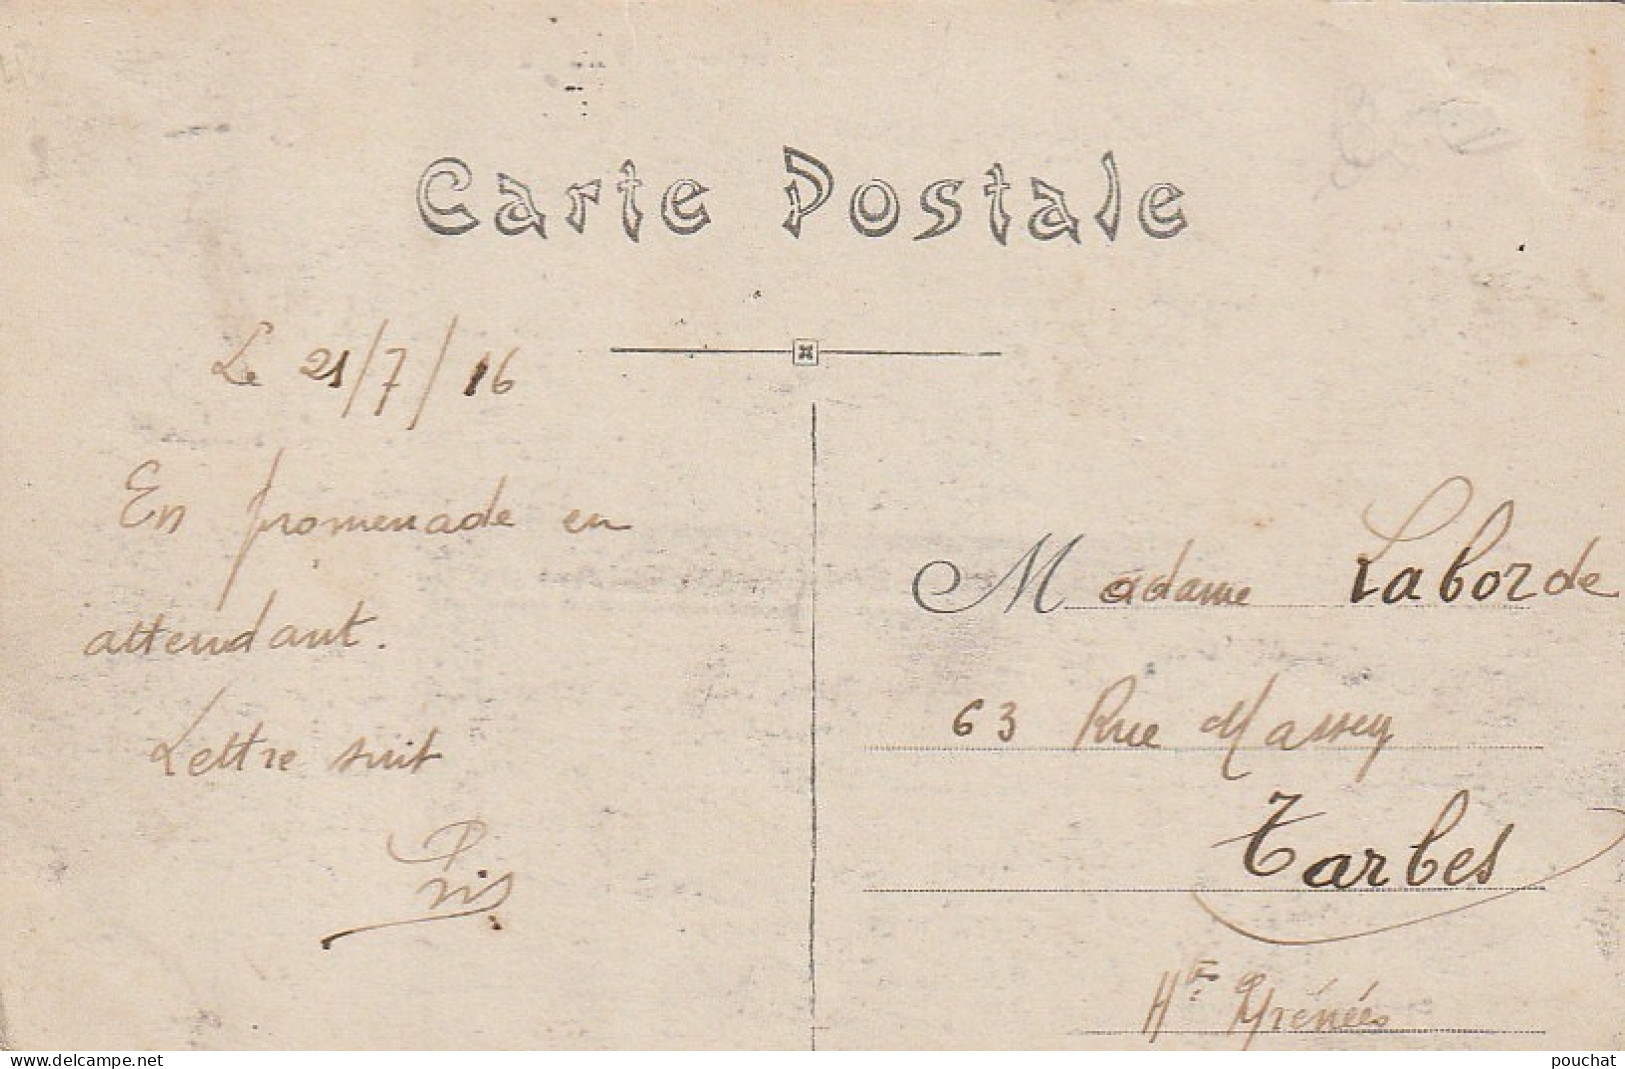 Carte Postale
Le 21/7/16
En promenade en
attendant.
Lettre suit
Madame Laborde
63 Rue Massey
Tarbes
Htes Pyrénées
www.delcampe.net
pouchat